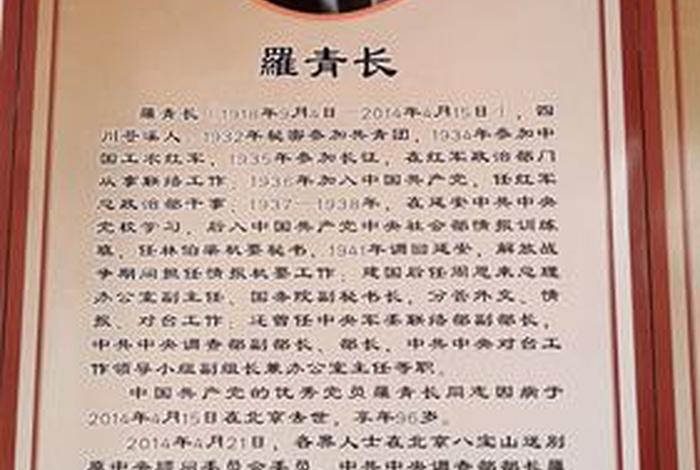 羅青长
羅青长（1918年9月4日—2014年4月15日），四
川苍溪人，1932年秘密参加共青团，1934年参加中
国工农红军，1935年参加长征，在红军政治部门
从事联络工作，1936年加入中国共产党，任红军
总政治部干事，1937—1938年，在延安中共中央
党校学习，后入中国共产党中央社会部情报训练
班，任林伯渠机要秘书，1941年调回延安，解放战
争期间担任情报机要工作；建国后任周恩来总理
办公室副主任、国务院副秘书长，分管外交、情
报、对台工作；还曾任中央军委联络部副部长，
中共中央调查部副部长、部长，中共中央对台工
作领导小组副组长兼办公室主任等职。
中国共产党的优秀党员羅青长同志因病于
2014年4月15日在北京去世，享年96岁。
2014年4月21日，各界人士在北京八宝山送别
原中央顾问委员会委员、中共中央调查部部长羅